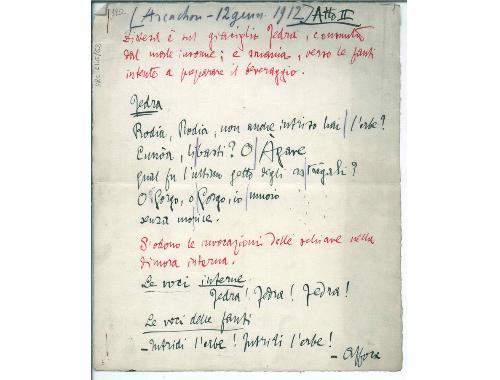 (Arcachon - 12 genn. 1912) Atto II
Distesa è sul giaciglio Fedra, consunta
dal male insonne; e smania, verso le fanti
intente a preparare il beveraggio.
Fedra
Rodia, Rodia, non anche intriso hai l'erbe?
Cunòa, libasti? O Àgave
qual fu l'ultimo getto degli astragali?
O Gorgo, o Gorgo, io muoio
senza morire.
S'odono le invocazioni delle nella
dimora interna.
Le voci interne
Fedra! Fedra! Fedra!
Le voci delle fanti
- Intridi l'erbe! Intridi l'erbe!
-